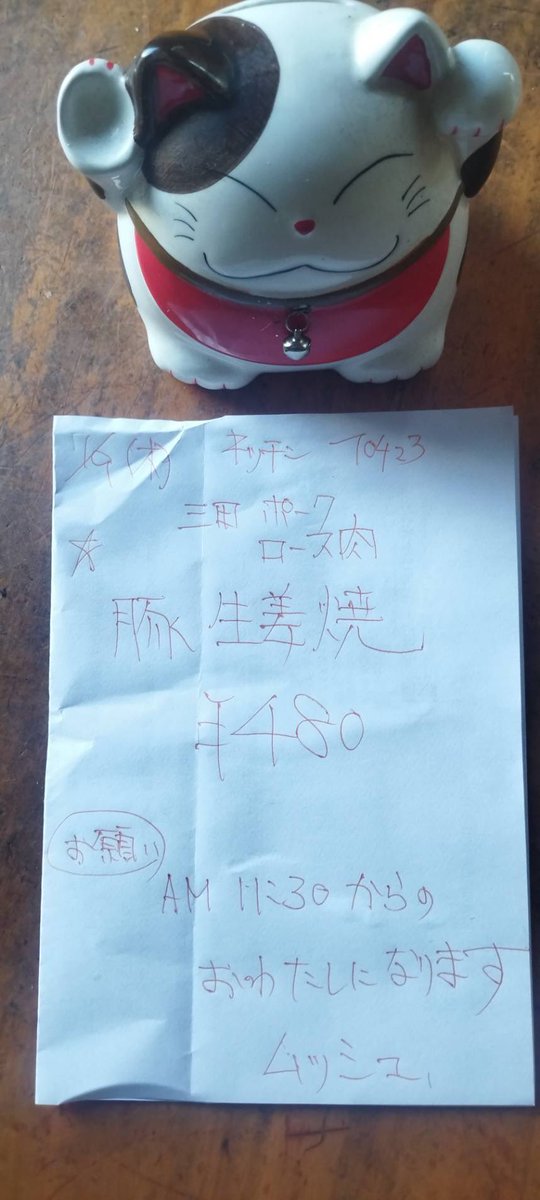 1/9 (木) キッチン 70423
三田 ポーク
ロース肉
☆
豚 生姜焼
¥480
お願い
AM 11:30 からの
おわたしになります
ムッシュ